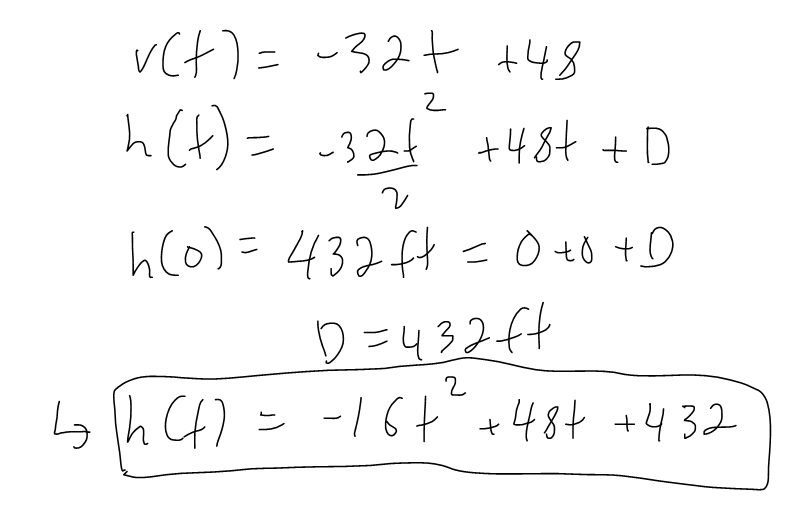 v(t) = -32t + 48
h(t) = -32t²/2 + 48t + D
h(0) = 432ft = 0 + 0 + D
D = 432ft
↳ h(t) = -16t² + 48t + 432